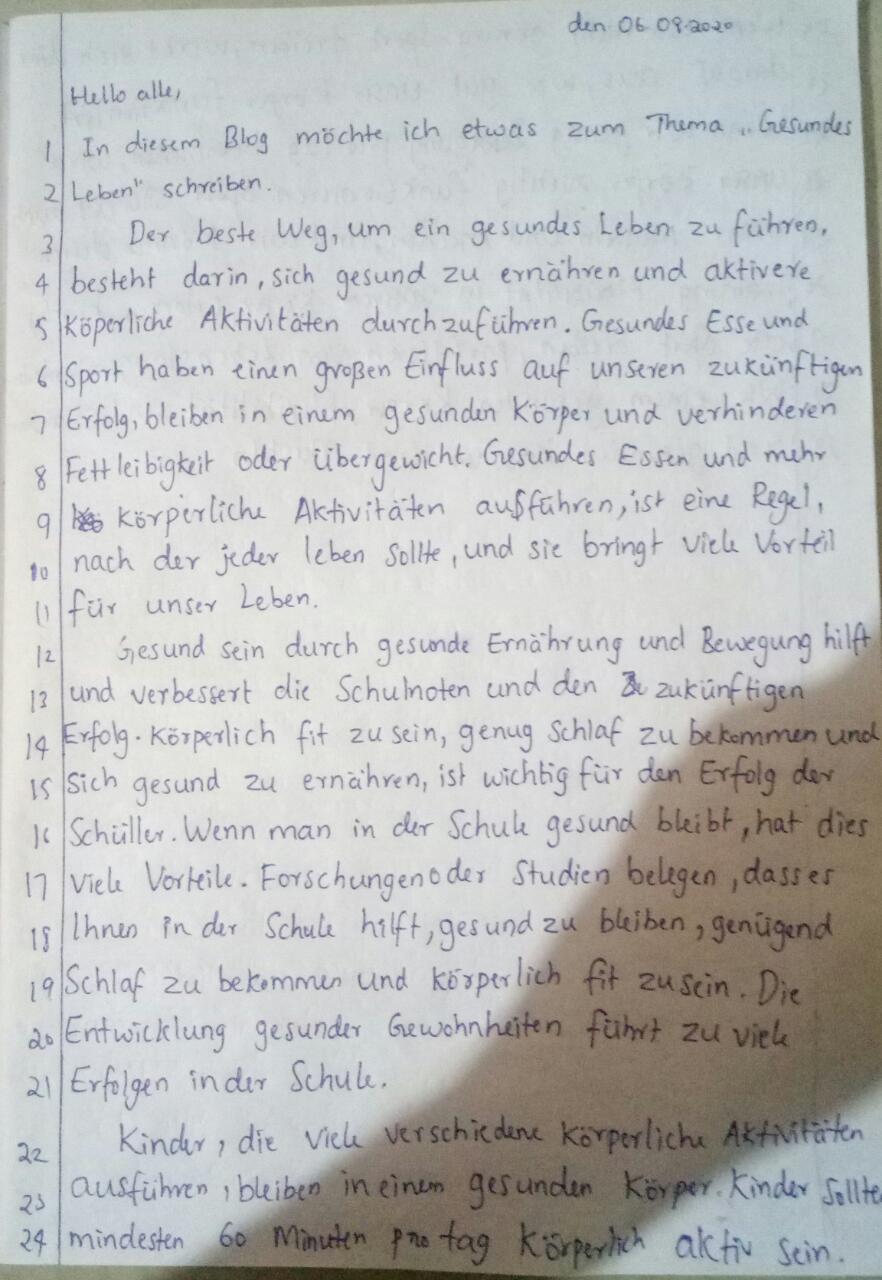 den 06.09.2020
Hello alle,
1 In diesem Blog möchte ich etwas zum Thema „Gesundes
2 Leben" schreiben.
3 Der beste Weg, um ein gesundes Leben zu führen,
4 besteht darin, sich gesund zu ernähren und aktivere
5 Köperliche Aktivitäten durchzuführen. Gesundes Esse und
6 Sport haben einen großen Einfluss auf unseren zukünftigen
7 Erfolg, bleiben in einem gesunden Körper und verhinderen
8 Fettleibigkeit oder übergewicht. Gesundes Essen und mehr
9 körperliche Aktivitäten außführen, ist eine Regel,
10 nach der jeder leben sollte, und sie bringt viele Vorteil
11 für unser Leben.
12 Gesund sein durch gesunde Ernährung und Bewegung hilft
13 und verbessert die Schulnoten und den zukünftigen
14 Erfolg. Körperlich fit zu sein, genug Schlaf zu bekommen und
15 Sich gesund zu ernähren, ist wichtig für den Erfolg der
16 Schüller. Wenn man in der Schule gesund bleibt, hat dies
17 viele Vorteile. Forschungen oder Studien belegen, dass es
18 Ihnen in der Schule hilft, gesund zu bleiben, genügend
19 Schlaf zu bekommen und körperlich fit zu sein. Die
20 Entwicklung gesunder Gewohnheiten führt zu viele
21 Erfolgen in der Schule.
22 Kinder, die viele verschiedene körperliche Aktivitäten
23 ausführen, bleiben in einem gesunden Körper. Kinder sollte
24 mindesten 60 Minuten pro tag Körperlich aktiv sein.